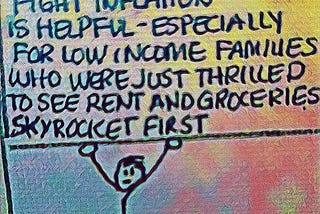 FIGHT INFLATION
IS HELPFUL - ESPECIALLY
FOR LOW INCOME FAMILIES
WHO WERE JUST THRILLED
TO SEE RENT AND GROCERIES
SKYROCKET FIRST